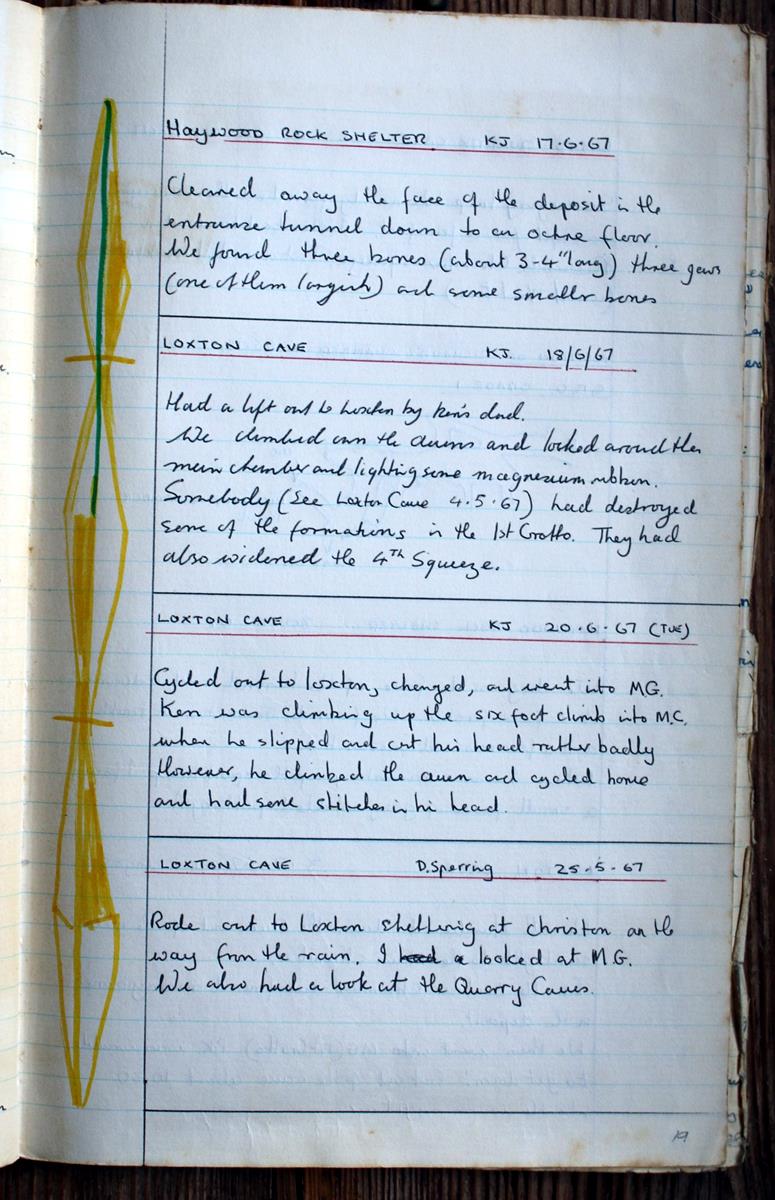 Haywood ROCK SHELTER KJ 17·6·67
Cleared away the face of the deposit in the
entrance tunnel down to an ochre floor.
We found three bones (about 3-4" long) three jaws
(one of them largish) and some smaller bones
LOXTON CAVE KJ. 18/6/67
Had a lift out to Loxton by Ken's dad.
We climbed down the avens and looked around the
main chamber and lighting some magnesium ribbon.
Somebody (See Loxton Cave 4.5.67) had destroyed
some of the formations in the 1st Grotto. They had
also widened the 4TH Squeeze.
LOXTON CAVE KJ 20·6·67 (TUE)
Cycled out to Loxton, changed, and went into MG.
Ken was climbing up the six foot climb into M.C.
when he slipped and cut his head rather badly
However, he climbed the aven and cycled home
and had some stitches in his head.
LOXTON CAVE D. Sperring 25·5·67
Rode out to Loxton sheltering at Christon on the
way from the rain. I looked at MG.
We also had a look at the Quarry Caves.
19